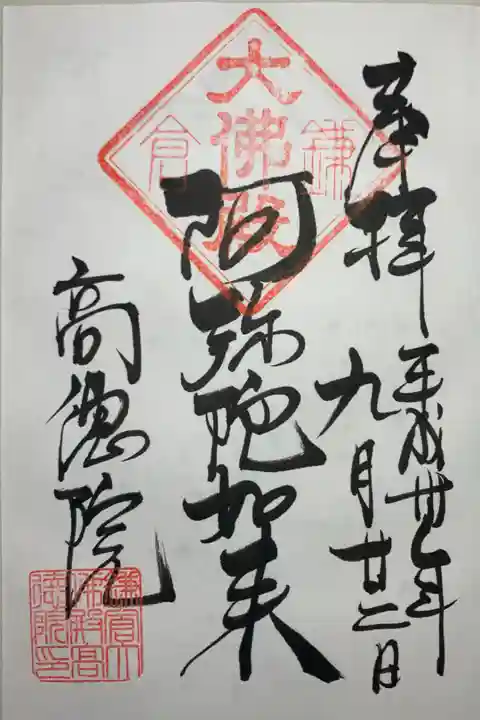 奉拝
平成卅年
九月廿二日
鎌倉
大佛殿
阿弥陀如来
高徳院
鎌倉大
佛殿高
德院印